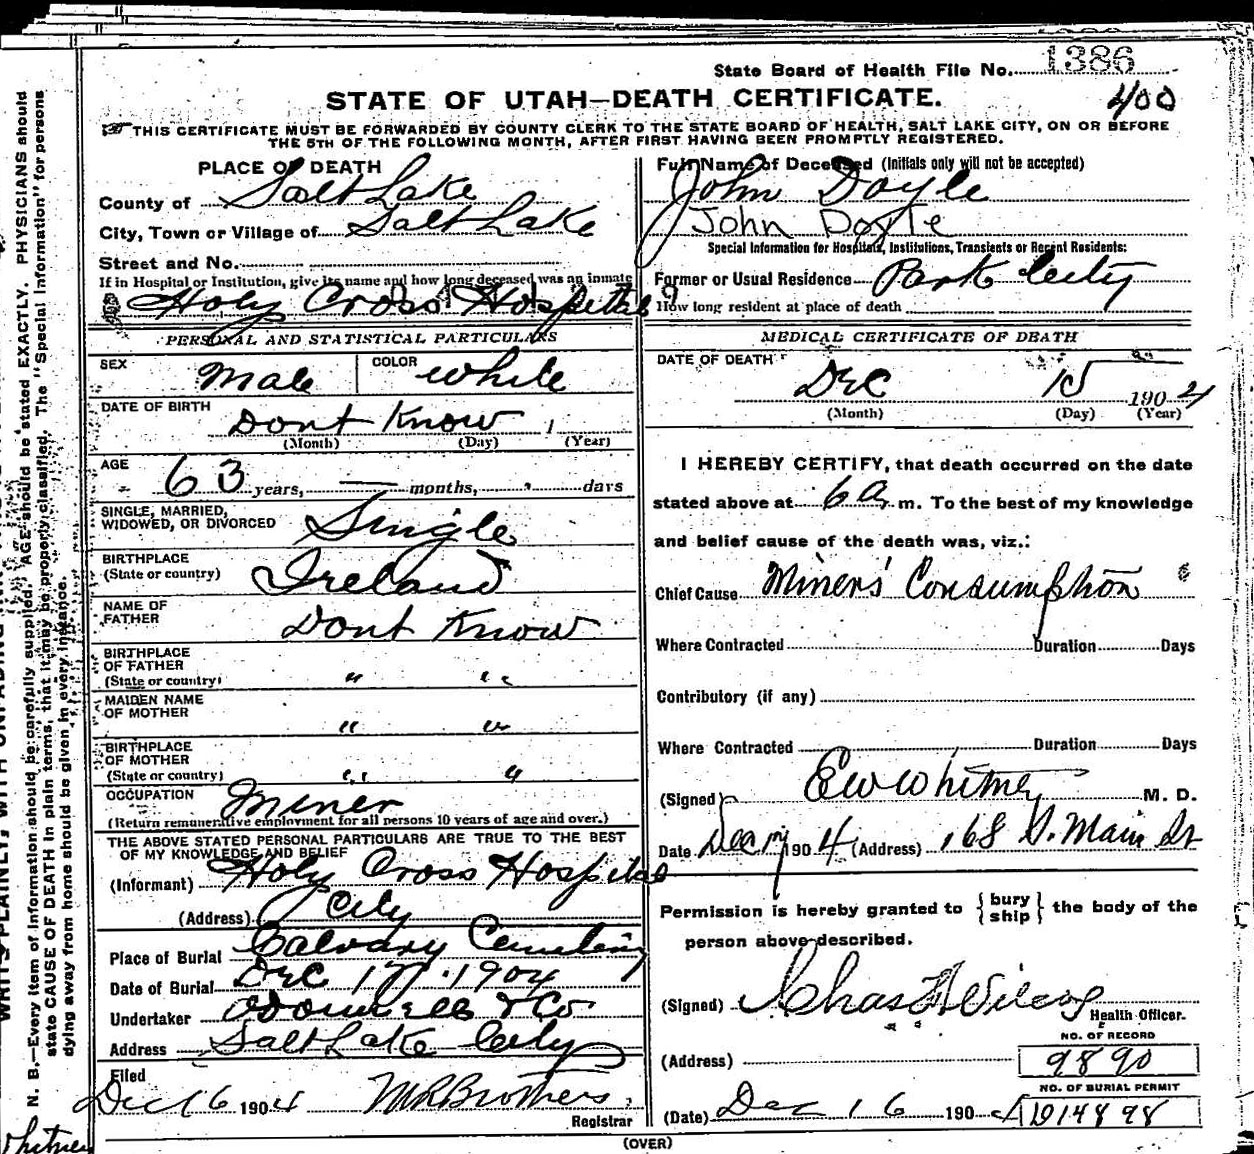 State Board of Health File No. 1386
STATE OF UTAH—DEATH CERTIFICATE.
400
THIS CERTIFICATE MUST BE FORWARDED BY COUNTY CLERK TO THE STATE BOARD OF HEALTH, SALT LAKE CITY, ON OR BEFORE
THE 5TH OF THE FOLLOWING MONTH, AFTER FIRST HAVING BEEN PROMPTLY REGISTERED.
PLACE OF DEATH
County of Salt Lake
City, Town or Village of Salt Lake
Street and No.
If in Hospital or Institution, give its name and how long deceased was an inmate
Holy Cross Hospital
PERSONAL AND STATISTICAL PARTICULARS
SEX Male COLOR White
DATE OF BIRTH Dont Know
(Month) (Day) (Year)
AGE 63 years, — months, days
SINGLE, MARRIED,
WIDOWED, OR DIVORCED Single
BIRTHPLACE
(State or country) Ireland
NAME OF
FATHER Dont Know
BIRTHPLACE
OF FATHER
(State or country) " "
MAIDEN NAME
OF MOTHER " "
BIRTHPLACE
OF MOTHER
(State or country) " "
OCCUPATION Miner
(Return remunerative employment for all persons 10 years of age and over.)
THE ABOVE STATED PERSONAL PARTICULARS ARE TRUE TO THE BEST
OF MY KNOWLEDGE AND BELIEF
(Informant) Holy Cross Hospital
(Address) City
Place of Burial Calvary Cemetery
Date of Burial Dec 17 1904
Undertaker ODonnell & Co
Address Salt Lake City
Filed
Dec 16 1904 M R Brothers
Registrar
Full Name of Deceased (Initials only will not be accepted)
John Doyle
John Doyle
Special Information for Hospitals, Institutions, Transients or Recent Residents:
Former or Usual Residence Park City
How long resident at place of death
MEDICAL CERTIFICATE OF DEATH
DATE OF DEATH
Dec 15 1904
(Month) (Day) (Year)
I HEREBY CERTIFY, that death occurred on the date
stated above at 6 a m. To the best of my knowledge
and belief cause of the death was, viz.:
Chief Cause Miner's Consumption
Where Contracted Duration Days
Contributory (if any)
Where Contracted Duration Days
(Signed) E W Whitney M. D.
Date Dec 1904 (Address) 168 S. Main St
Permission is hereby granted to { bury ship } the body of the
person above described.
(Signed) Chas Wilcox
Health Officer.
NO. OF RECORD
(Address) 9890
NO. OF BURIAL PERMIT
(Date) Dec 16 1904 D14898
(OVER)
N. B.—Every item of information should be carefully supplied. AGE should be stated EXACTLY. PHYSICIANS should
state CAUSE OF DEATH in plain terms, that it may be properly classified. The "Special Information" for persons
dying away from home should be given in every instance.
Whitney